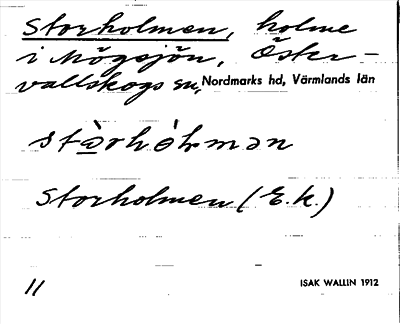 Storholmen, holme
i Mögsjön, Öster-
vallskogs sn, Nordmarks hd, Värmlands län
stòrhólmən
Storholmen (E.k.)
11 ISAK WALLIN 1912